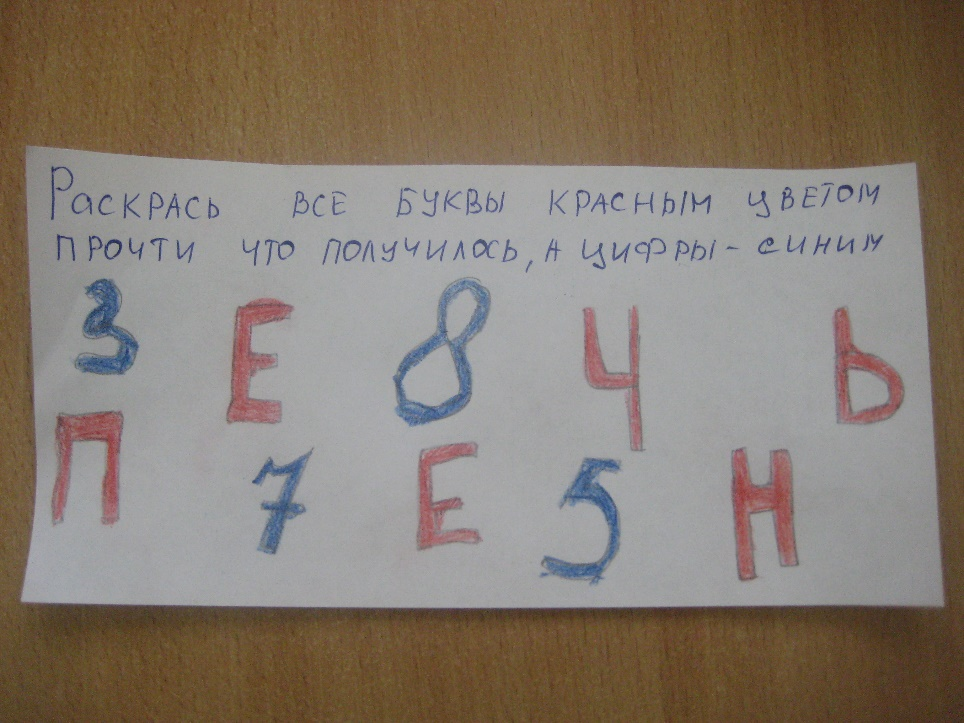 Раскрась все буквы красным цветом
прочти что получилось, а цифры - синим
3 Е 8 Ч Ь
П 7 Е 5 Н